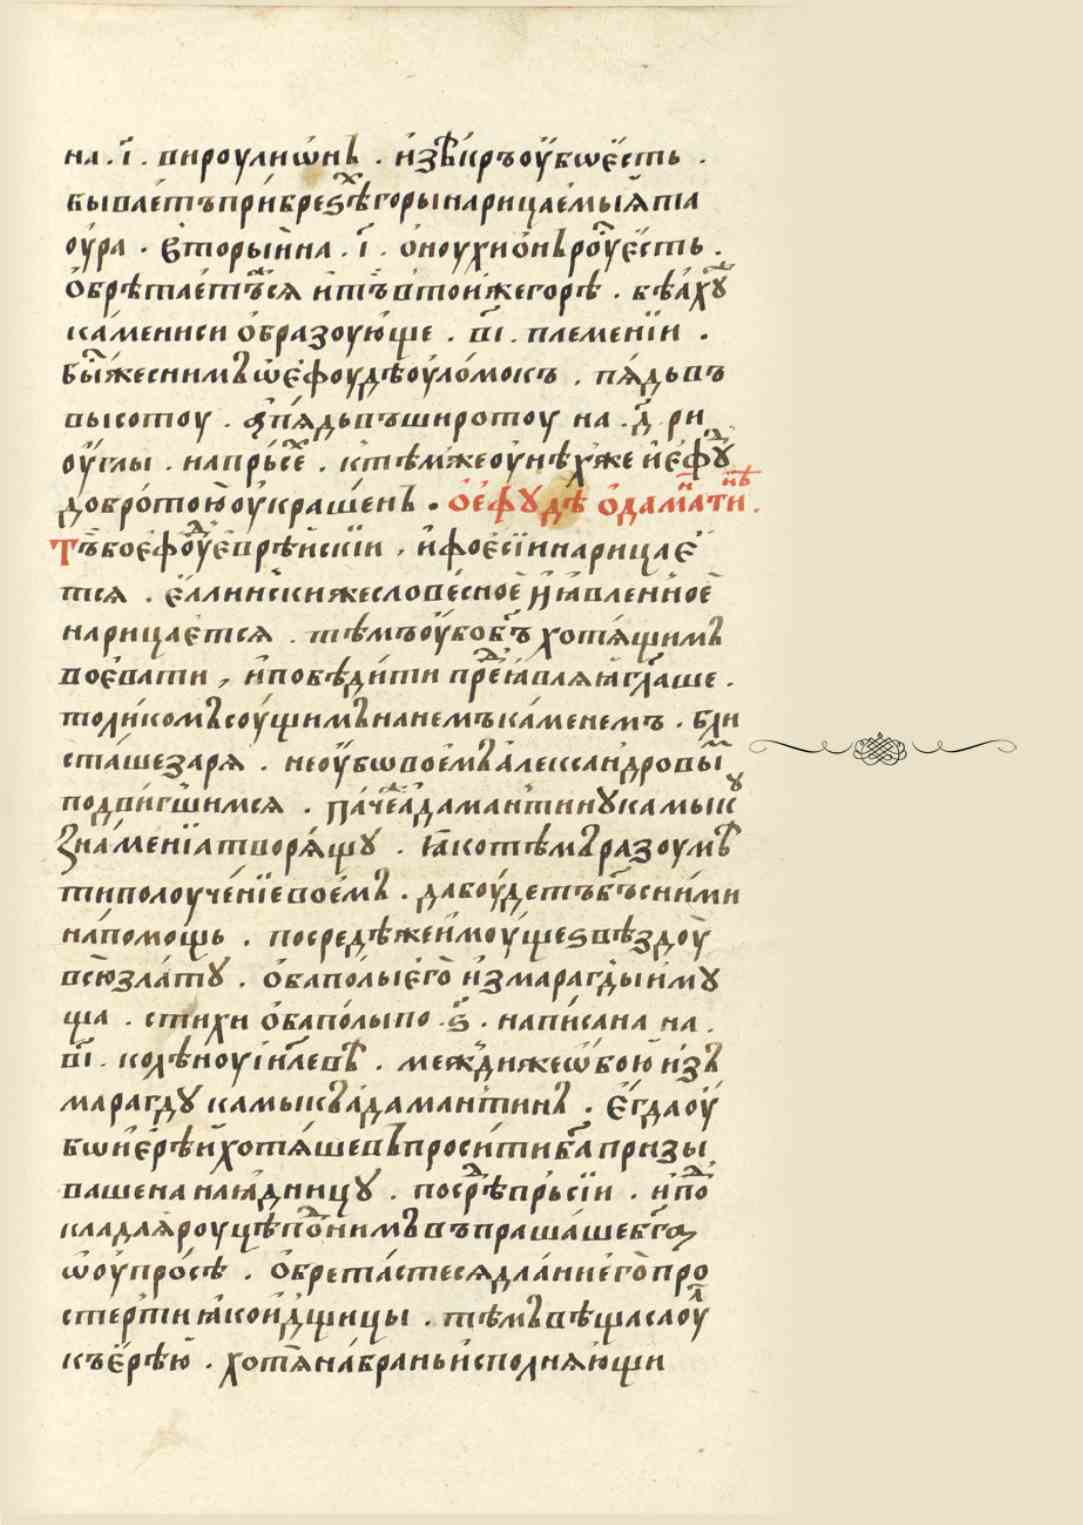 на . і҃ . вироулиѡнъ . и҆зъвкръоу҆бѡе҆сть .
бываетъприбрезѣⷯгорынарицаемыꙗта
оура . Вторыина . і҃ . ѻноухионъроⷣуесть .
ѻбрѣтаетъⷤсѧ итъⷤвтоиꙗжегорѣ . бѣахуⷤ
камениси ѻбразоующе . в҃і . племении .
быⷭжеснимъѡефоудѣоуломокъ . пѧдьвъ
высотоу . ѕпѧдьвъширотоу на . д҃ ри
оуглы . напрьсеⷯ . ктѣмжеоунѣхже иефуⷣ
добротоюоукрашенъ . ѻефудѣ ѻдамаⷩтиⷩнѣ .
Тъⷤбоефоуⷣеврѣискіи , ифоесіинарицае
тсѧ . еллинскижесловесное иꙗвленное
нарицаетсѧ . тѣмъоубобг҃ъ хотѧщимъ
воевати , ипобѣдити преⷣꙗвлѧꙗгл҃аше .
толикомъсоущимънанемъкаменемъ . бли
сташезарѧ . неоубѡвоемъалександровыⷨ
подвигшимсѧ . пачеⷤадамантинукамыку
Знаменіатворѧщу . ꙗкотѣмъразоумѣ
типолоученіевоемъ . дабоудетъбг҃ъсними
напомощь . посредѣжеимоущеѕвѣздоу
всюзлату . ѻбаполыего измарагдыиму
ща . стихи ѻбаполыпо . ѕ҃ . написана на .
в҃і . колѣноуіи҃левѣ . междижеѡбою изъ
марагду камыкъадамантинъ . Егдаоу
бѡиерѣихотѧшевъпроситиб҃гапризы
вашенанаꙗдницу . посреⷣѣпрьсіи . ипоⷣ
кладаѧроуцѣпоⷣнимъвъпрашашебг҃а
ѡоупросѣ . ѻбретастесѧдланиегопро
стертиꙗкоидщицы . тѣмъвѣщаслоуⷧ
къерѣю . хотѧнабраньисполнѧющи